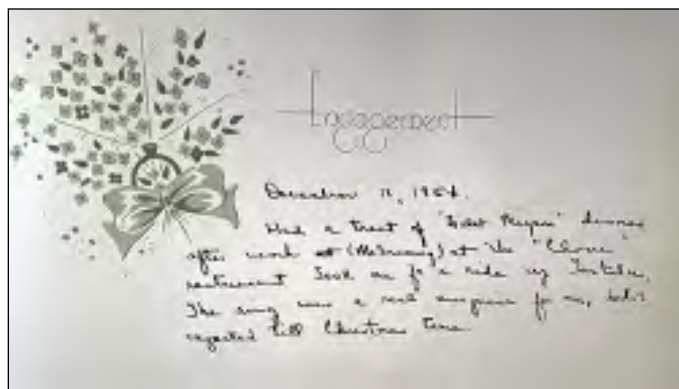 Engagement
December 11, 1954.
Had a treat of "Filet Mignon" dinner
after work at () at the " "
restaurant Took me for a ride up
The ring was a real surprise for me, didn't
expected till Christmas time.